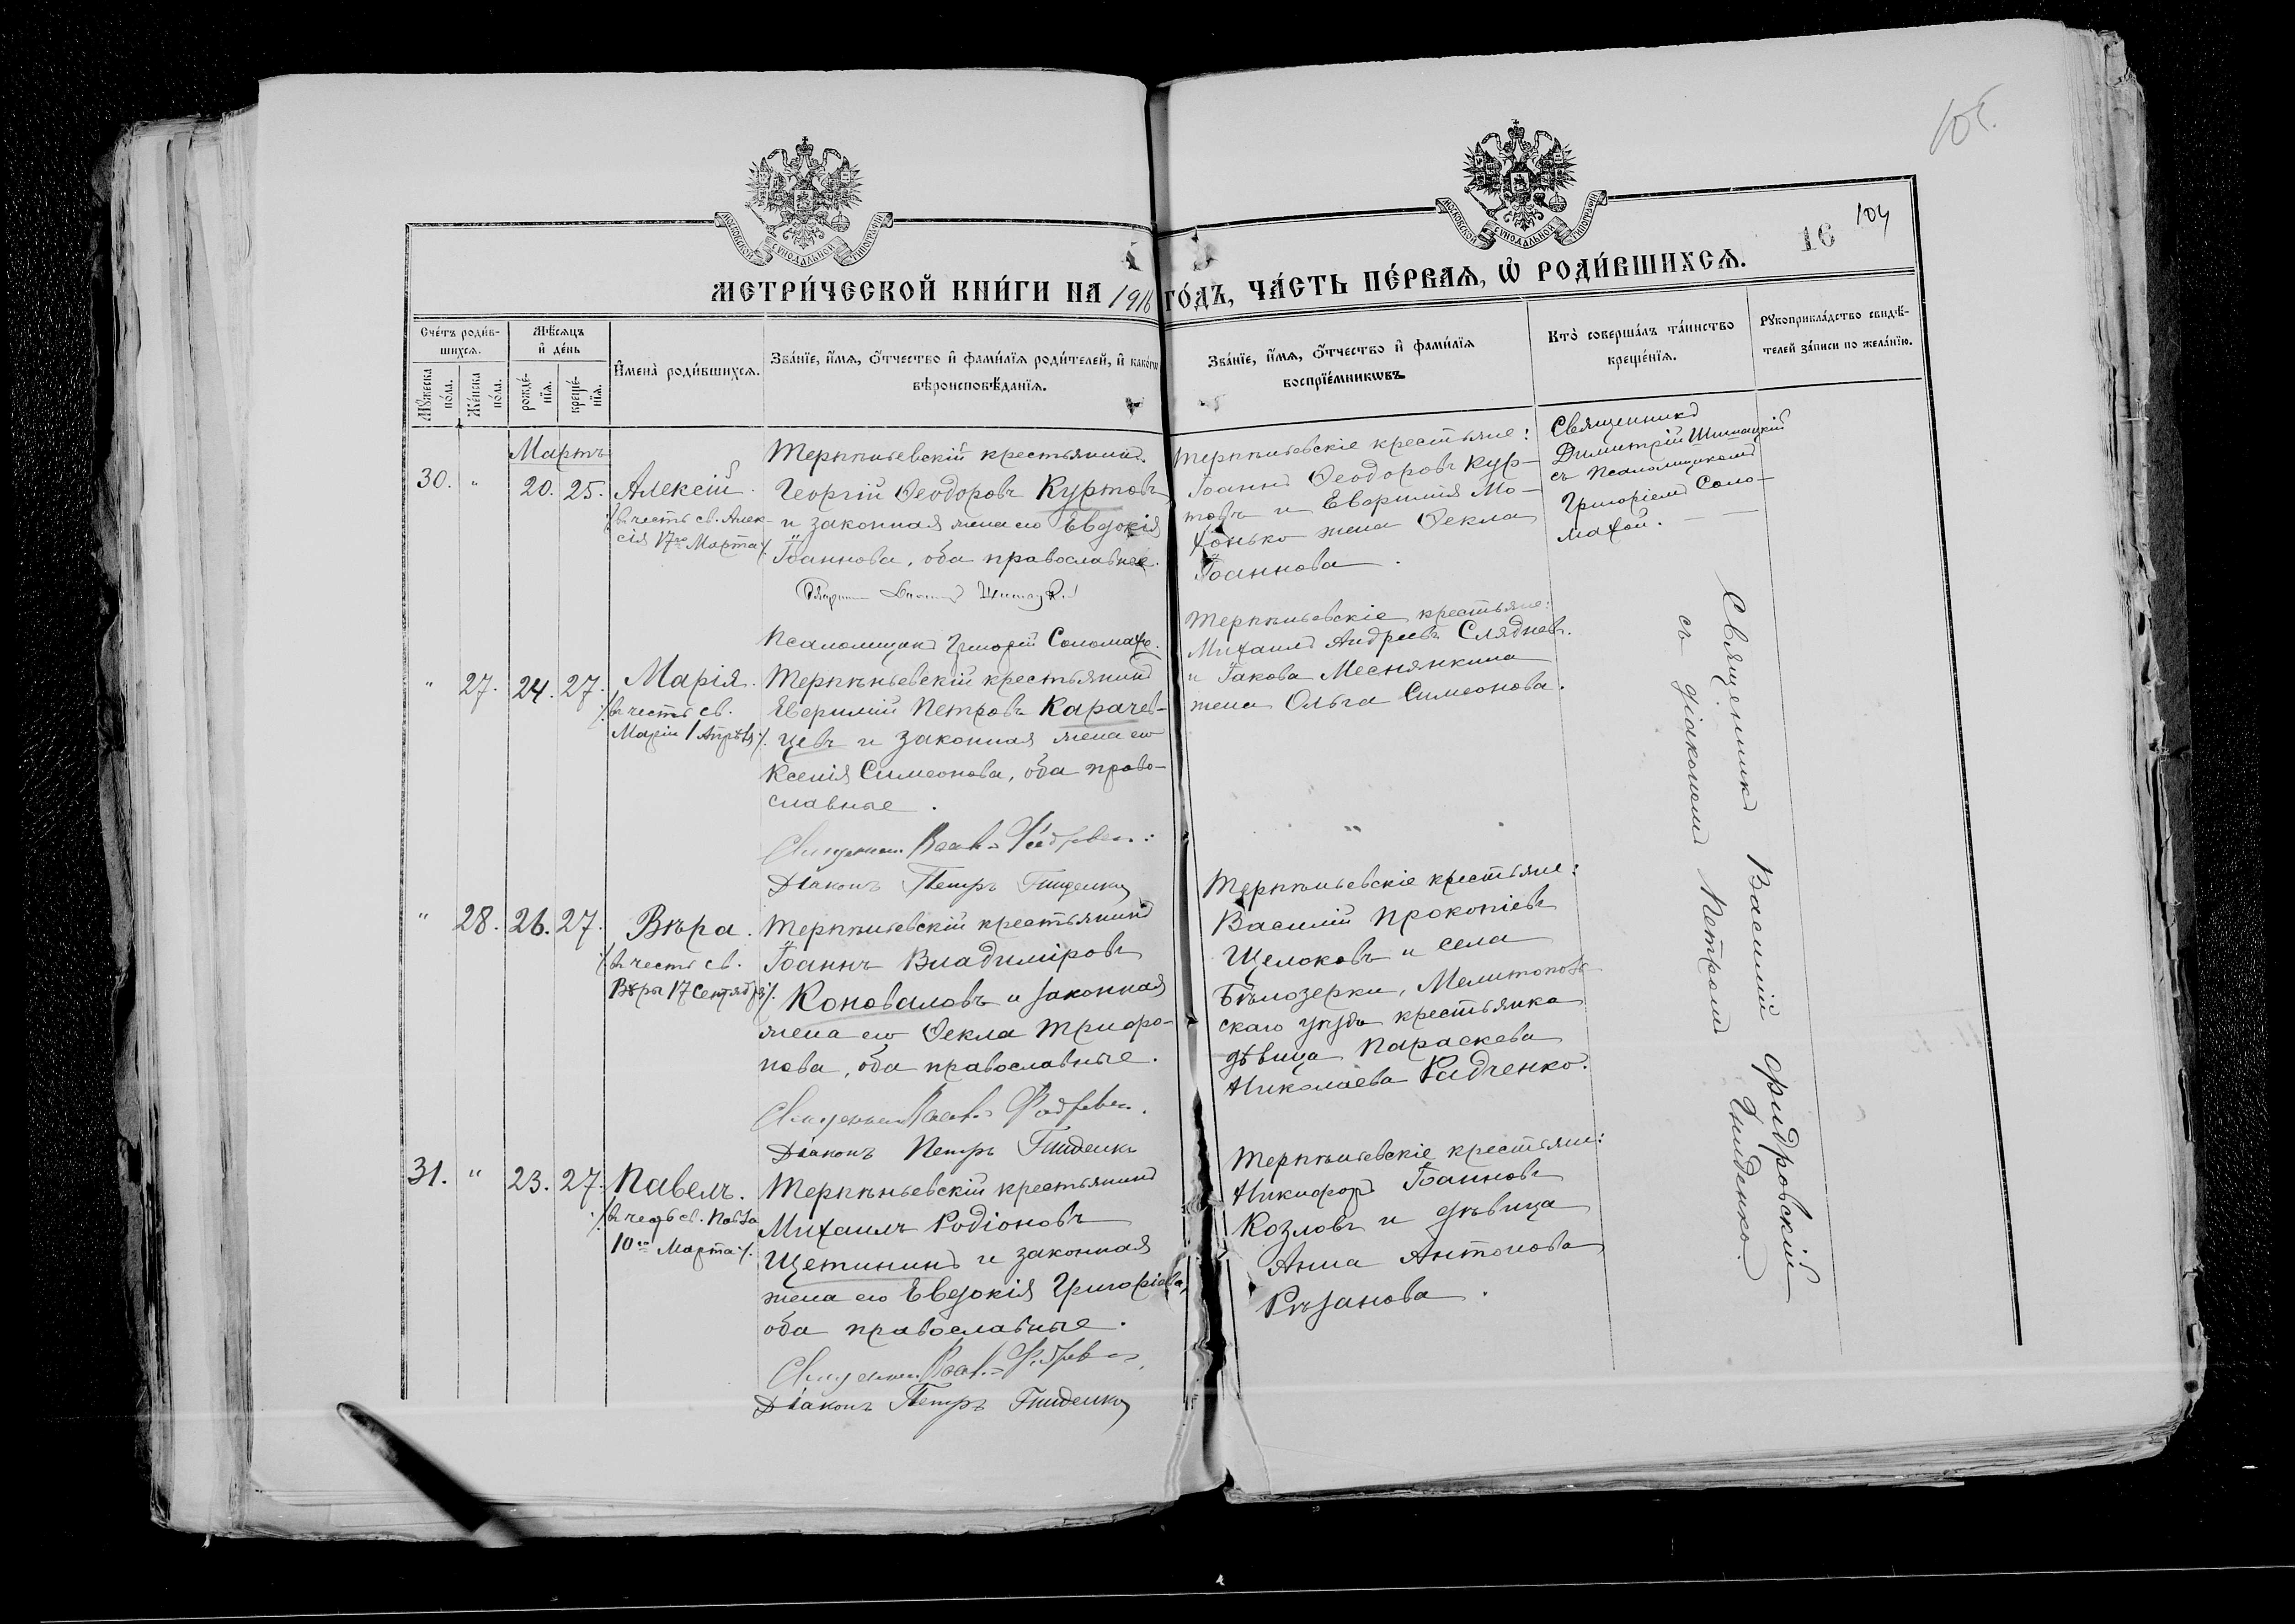 105.
104
16
МОСКОВСКОЙ СѴНОДАЛЬНОЙ ТИПОГРАФІИ
МОСКОВСКОЙ СѴНОДАЛЬНОЙ ТИПОГРАФІИ
МЕТРИ́ЧЕСКОЙ КНИ́ГИ НА 1916 ГО́ДЪ, ЧА́СТЬ ПЕ́РВАЯ, Ѡ РОДИ́ВШИХСЯ.
Сче́тъ роди́в-
шихся.
Мѣ́сяцъ
и де́нь
Му́жеска
по́ла.
Же́нска
по́ла.
рожде́-
нїя.
креще́-
нїя.
Имена̀ роди́вшихся.
Зва́нїе, и́мя, о́тчество и фами́лїя роди́телей, и како́гѡ
вѣроисповѣ́данїя.
Зва́нїе, и́мя, о́тчество и фами́лїя
воспрїе́мникѡвъ.
Кто̀ соверша́лъ та́инство
креще́нїя.
Рукоприкла́дство свидѣ́-
телей за́писи по жела́нїю.
Мартъ
30. " 20. 25. Алексій.
/въ честь св. Алек-
сія 17го Марта/.
Терпѣньевскій крестьянинъ
Георгій Ѳеодоровъ Куртовъ
и законная жена его Евдокія
Іоаннова, оба православные.
Псаломщикъ Григорій Соломаха.
Терпѣньевскіе крестьяне:
Іоаннъ Ѳеодоровъ Кур-
товъ и Евфимія Мо-
хонько жена Ѳекла
Іоаннова.
Священникъ
Димитрій Шишацкій
съ Псаломщикомъ
Григоріемъ Соло-
махой.
" 27. 24. 27. Марія.
/въ честь св.
Маріи 1 Апрѣля/.
Терпѣньевскій крестьянинъ
Евфимій Петровъ Карачев-
цевъ и законная жена его
Ксенія Симеонова, оба право-
славные.
Діаконъ Петръ Гниденко
Терпѣньевскіе крестьяне:
Михаилъ Андреевъ Сляднев.
и Іакова Меснянкина
жена Ольга Симеонова.
Священникъ Василій Фидровскій
съ діакономъ Петромъ Гниденко.
" 28. 26. 27. Вѣра.
/въ честь св.
Вѣры 17 Сентября/.
Терпѣньевскій крестьянинъ
Іоаннъ Владиміровъ
Коноваловъ и законная
жена его Ѳекла Трифо-
нова, оба православные.
Діаконъ Петръ Гниденко
Терпѣньевскіе крестьяне:
Василій Прокопіевъ
Щелоковъ и села
Бѣлозерки, Мелитополь-
скаго уѣзда крестьянка
дѣвица Параскева
Николаева Радченко.
31. " 23. 27. Павелъ.
/въ честь св. Павла
10го Марта/.
Терпѣньевскій крестьянинъ
Михаилъ Родіоновъ
Щетининъ и законная
жена его Евдокія Григоріева,
оба православные.
Діаконъ Петръ Гниденко
Терпѣньевскіе крестьяне:
Никифоръ Іоанновъ
Козловъ и дѣвица
Анна Антонова
Рѣзанова.